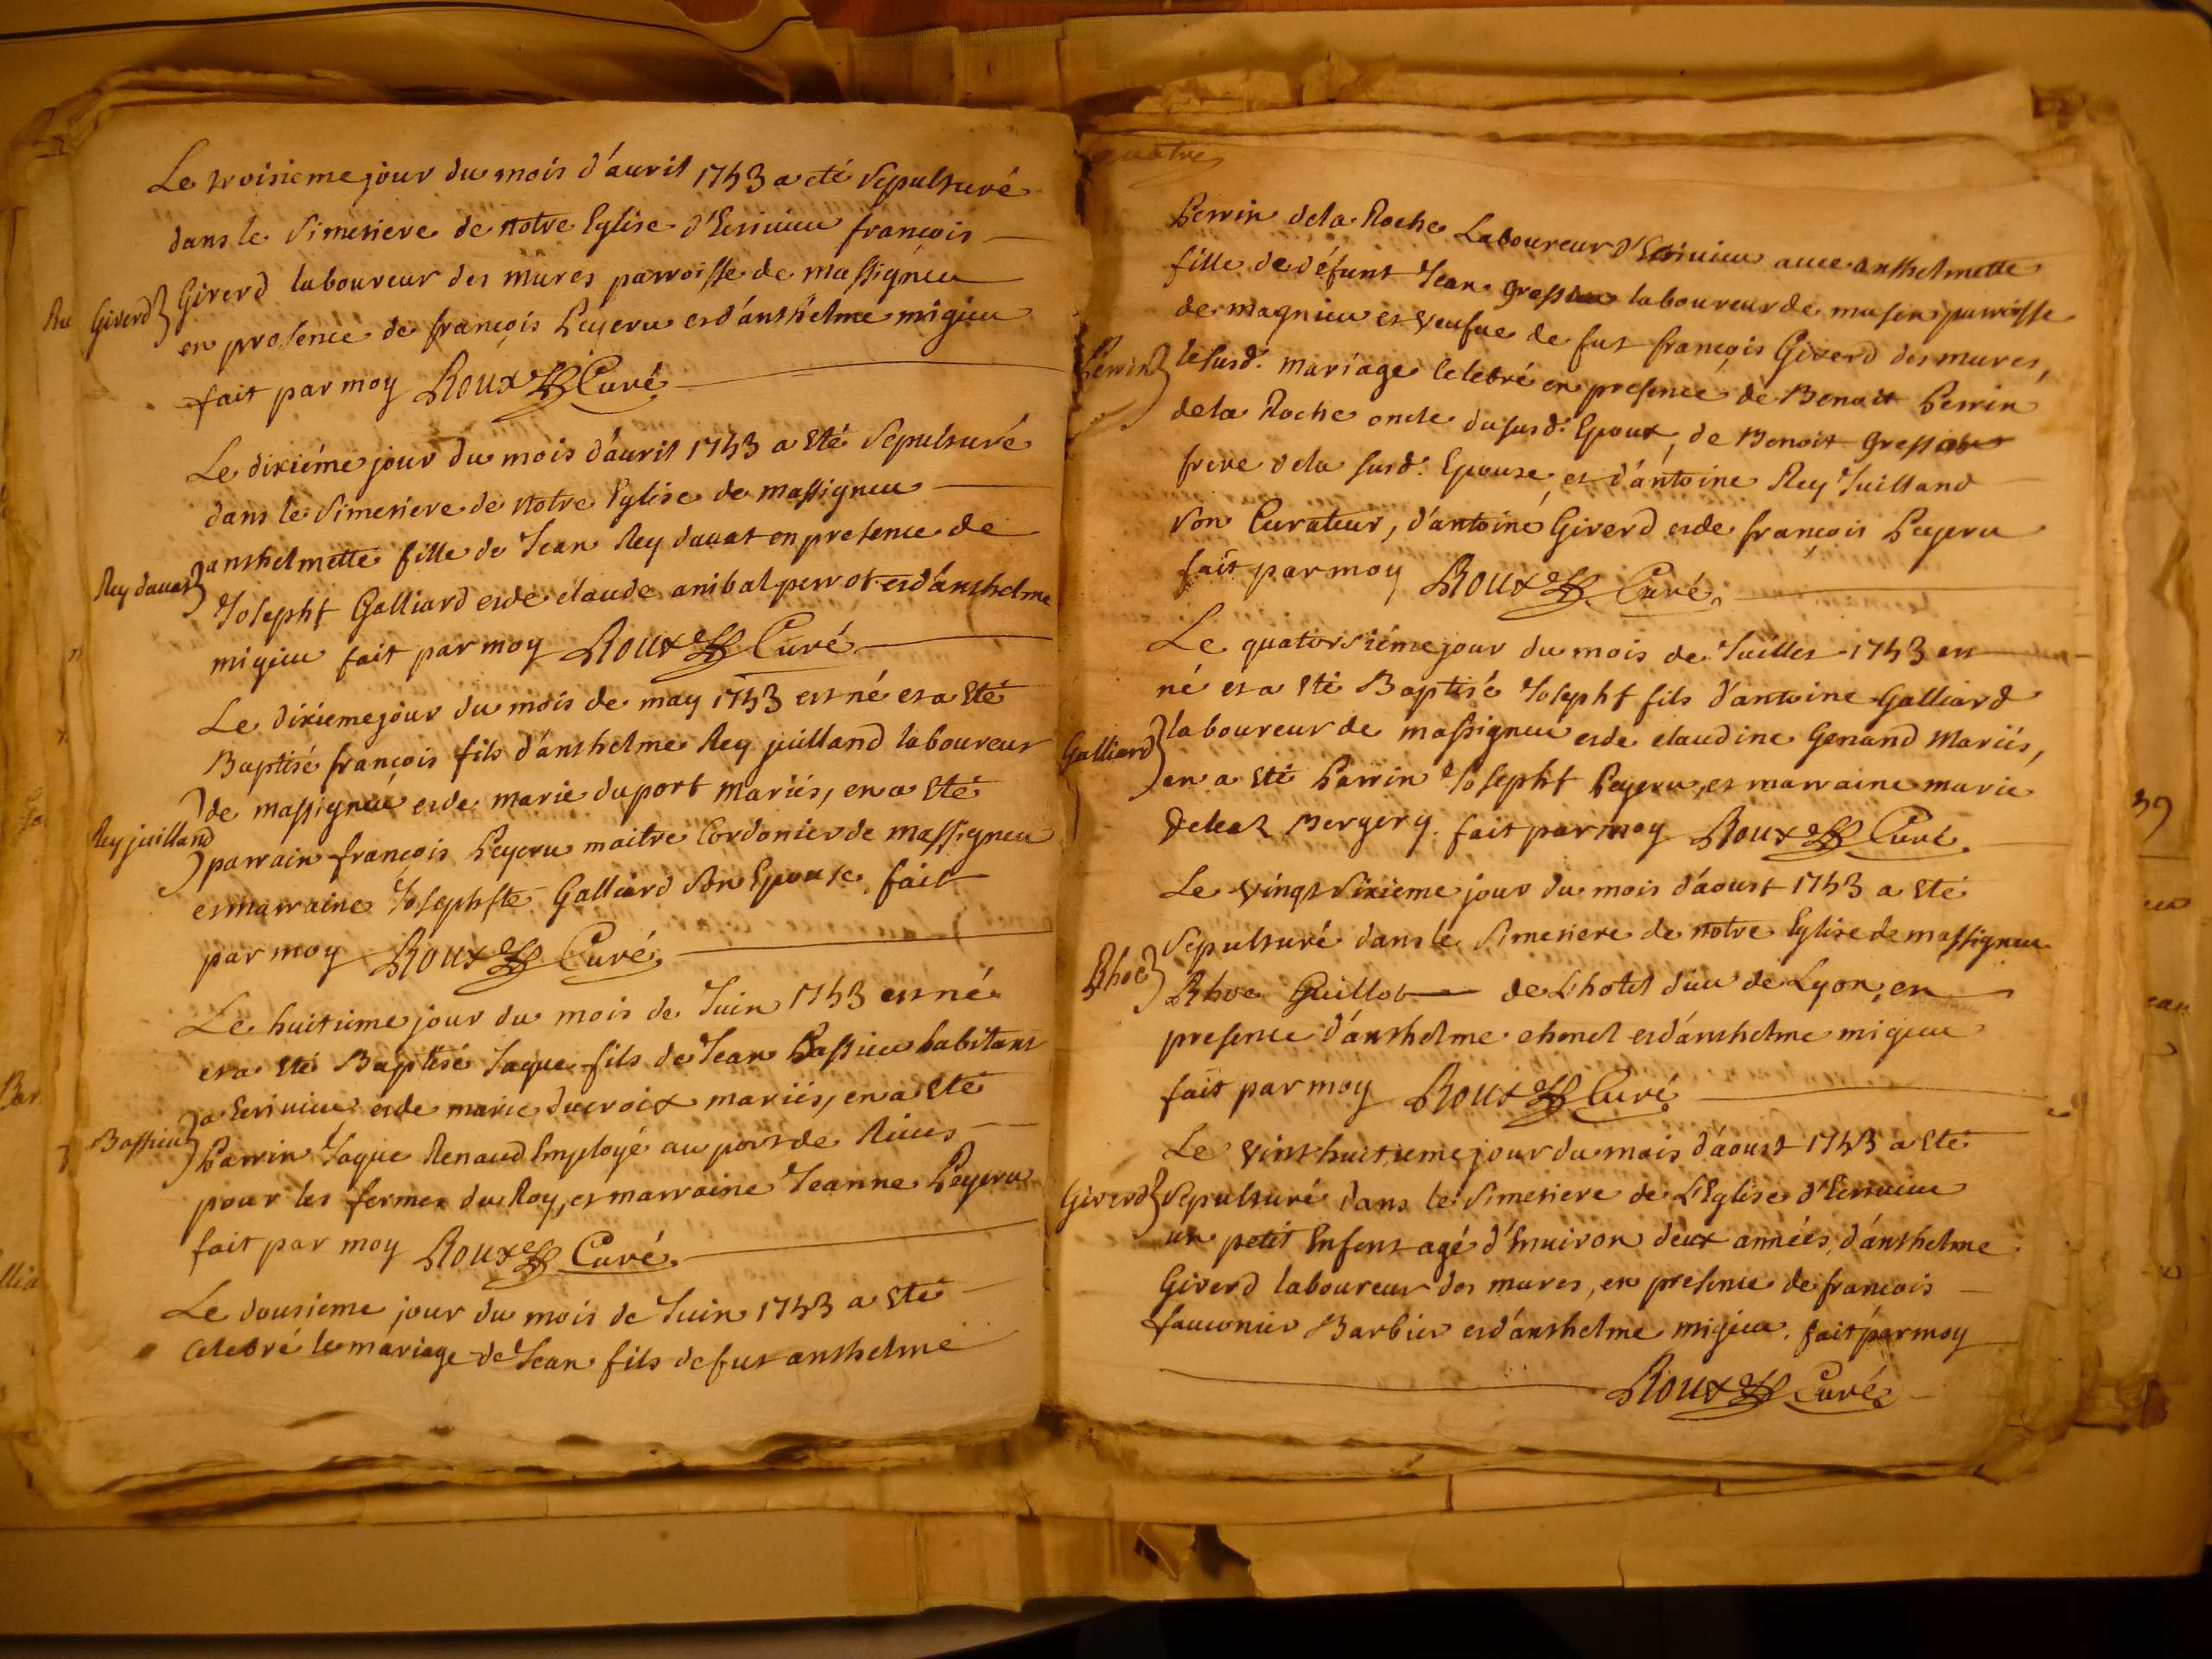 Le troisieme jour du mois d'auril 1743 a eté sepulturé
dans le simetiere de notre Eglise d'Ecrivieu françois
Girerd
Girerd laboureur des mures parroisse de massigneu
en presence de françois Peyeru et d'anthelme migieu
fait par moy Roux Curé
Le dixiéme jour du mois d'auril 1743 a Eté sepulturé
dans le simetiere de notre Eglise de massigneu
anthelmette fille de Jean Rey dauat en presence de
Rey dauat
Josepht Galliard et de claude anibal perrot et d'anthelme
migieu fait par moy Roux Curé
Le dixieme jour du mois de may 1743 est né et a Eté
Baptisé françois fils d'anthelme Rey juilland laboureur
de massigneu et de marie duport mariés, en a Eté
Rey juilland
parrain françois Peyeru maitre Cordonier de massigneu
et marraine Josephte Galliard son Epouse, fait
par moy Roux Curé
Le huitieme jour du mois de Juin 1743 est né
et a Eté Baptisé Jaque fils de Jean Bassieu habitant
a Ecrivieu et de marie ducroix mariés, en a Eté
Bassieu
Parrin Jaque Renaud Employé au port de Rives
pour les fermes du Roy, et marraine Jeanne Peyeru
fait par moy Roux Curé
Le dousieme jour du mois de Juin 1743 a Eté
Celebré le mariage de Jean fils de fut anthelme
quatre
Perrin de la Roche Laboureur d'Ecrivieu avec anthelmette
fille de défunt Jean laboureur de muson parroisse
de magnieu et veufue de fut françois Girerd des mures,
Perrin
le susd. mariage Celebré en presence de Benoit Perrin
de la Roche oncle du susd. Epoux, de Benoit
frere de la susd. Epouse, et d'antoine Rey Juilland
son Curateur, d'antoine Girerd et de françois Peyeru
fait par moy Roux Curé
Le quatorsiéme jour du mois de Juillet 1743 est
né et a Eté Baptisé Josepht fils d'antoine Galliard
Galliard
laboureur de massigneu et de claudine Genand Mariés,
en a Eté Parrin Josepht Peyeru, et marraine marie
fait par moy Roux Curé
Le vingt sixieme jour du mois d'aoust 1743 a Eté
sepulturé dans le simetiere de notre Eglise de massigneu
Rhoe
Rhoe Guillot de L'hotel dieu de Lyon, en
presence d'anthelme chonel et d'anthelme migieu
fait par moy Roux Curé
Le vint huitieme jour du mois d'aoust 1743 a Eté
Girerd
sepulturé dans le simetiere de L'Eglise d'Ecrivieu
un petit Enfent agé d'Enuiron deux années, d'anthelme
Girerd laboureur des mures, en presence de françois
fauconier Barbier et d'anthelme migieu. fait par moy
Roux Curé